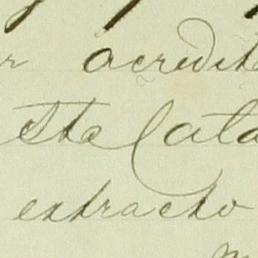 r acredit
ste Cata
extracto